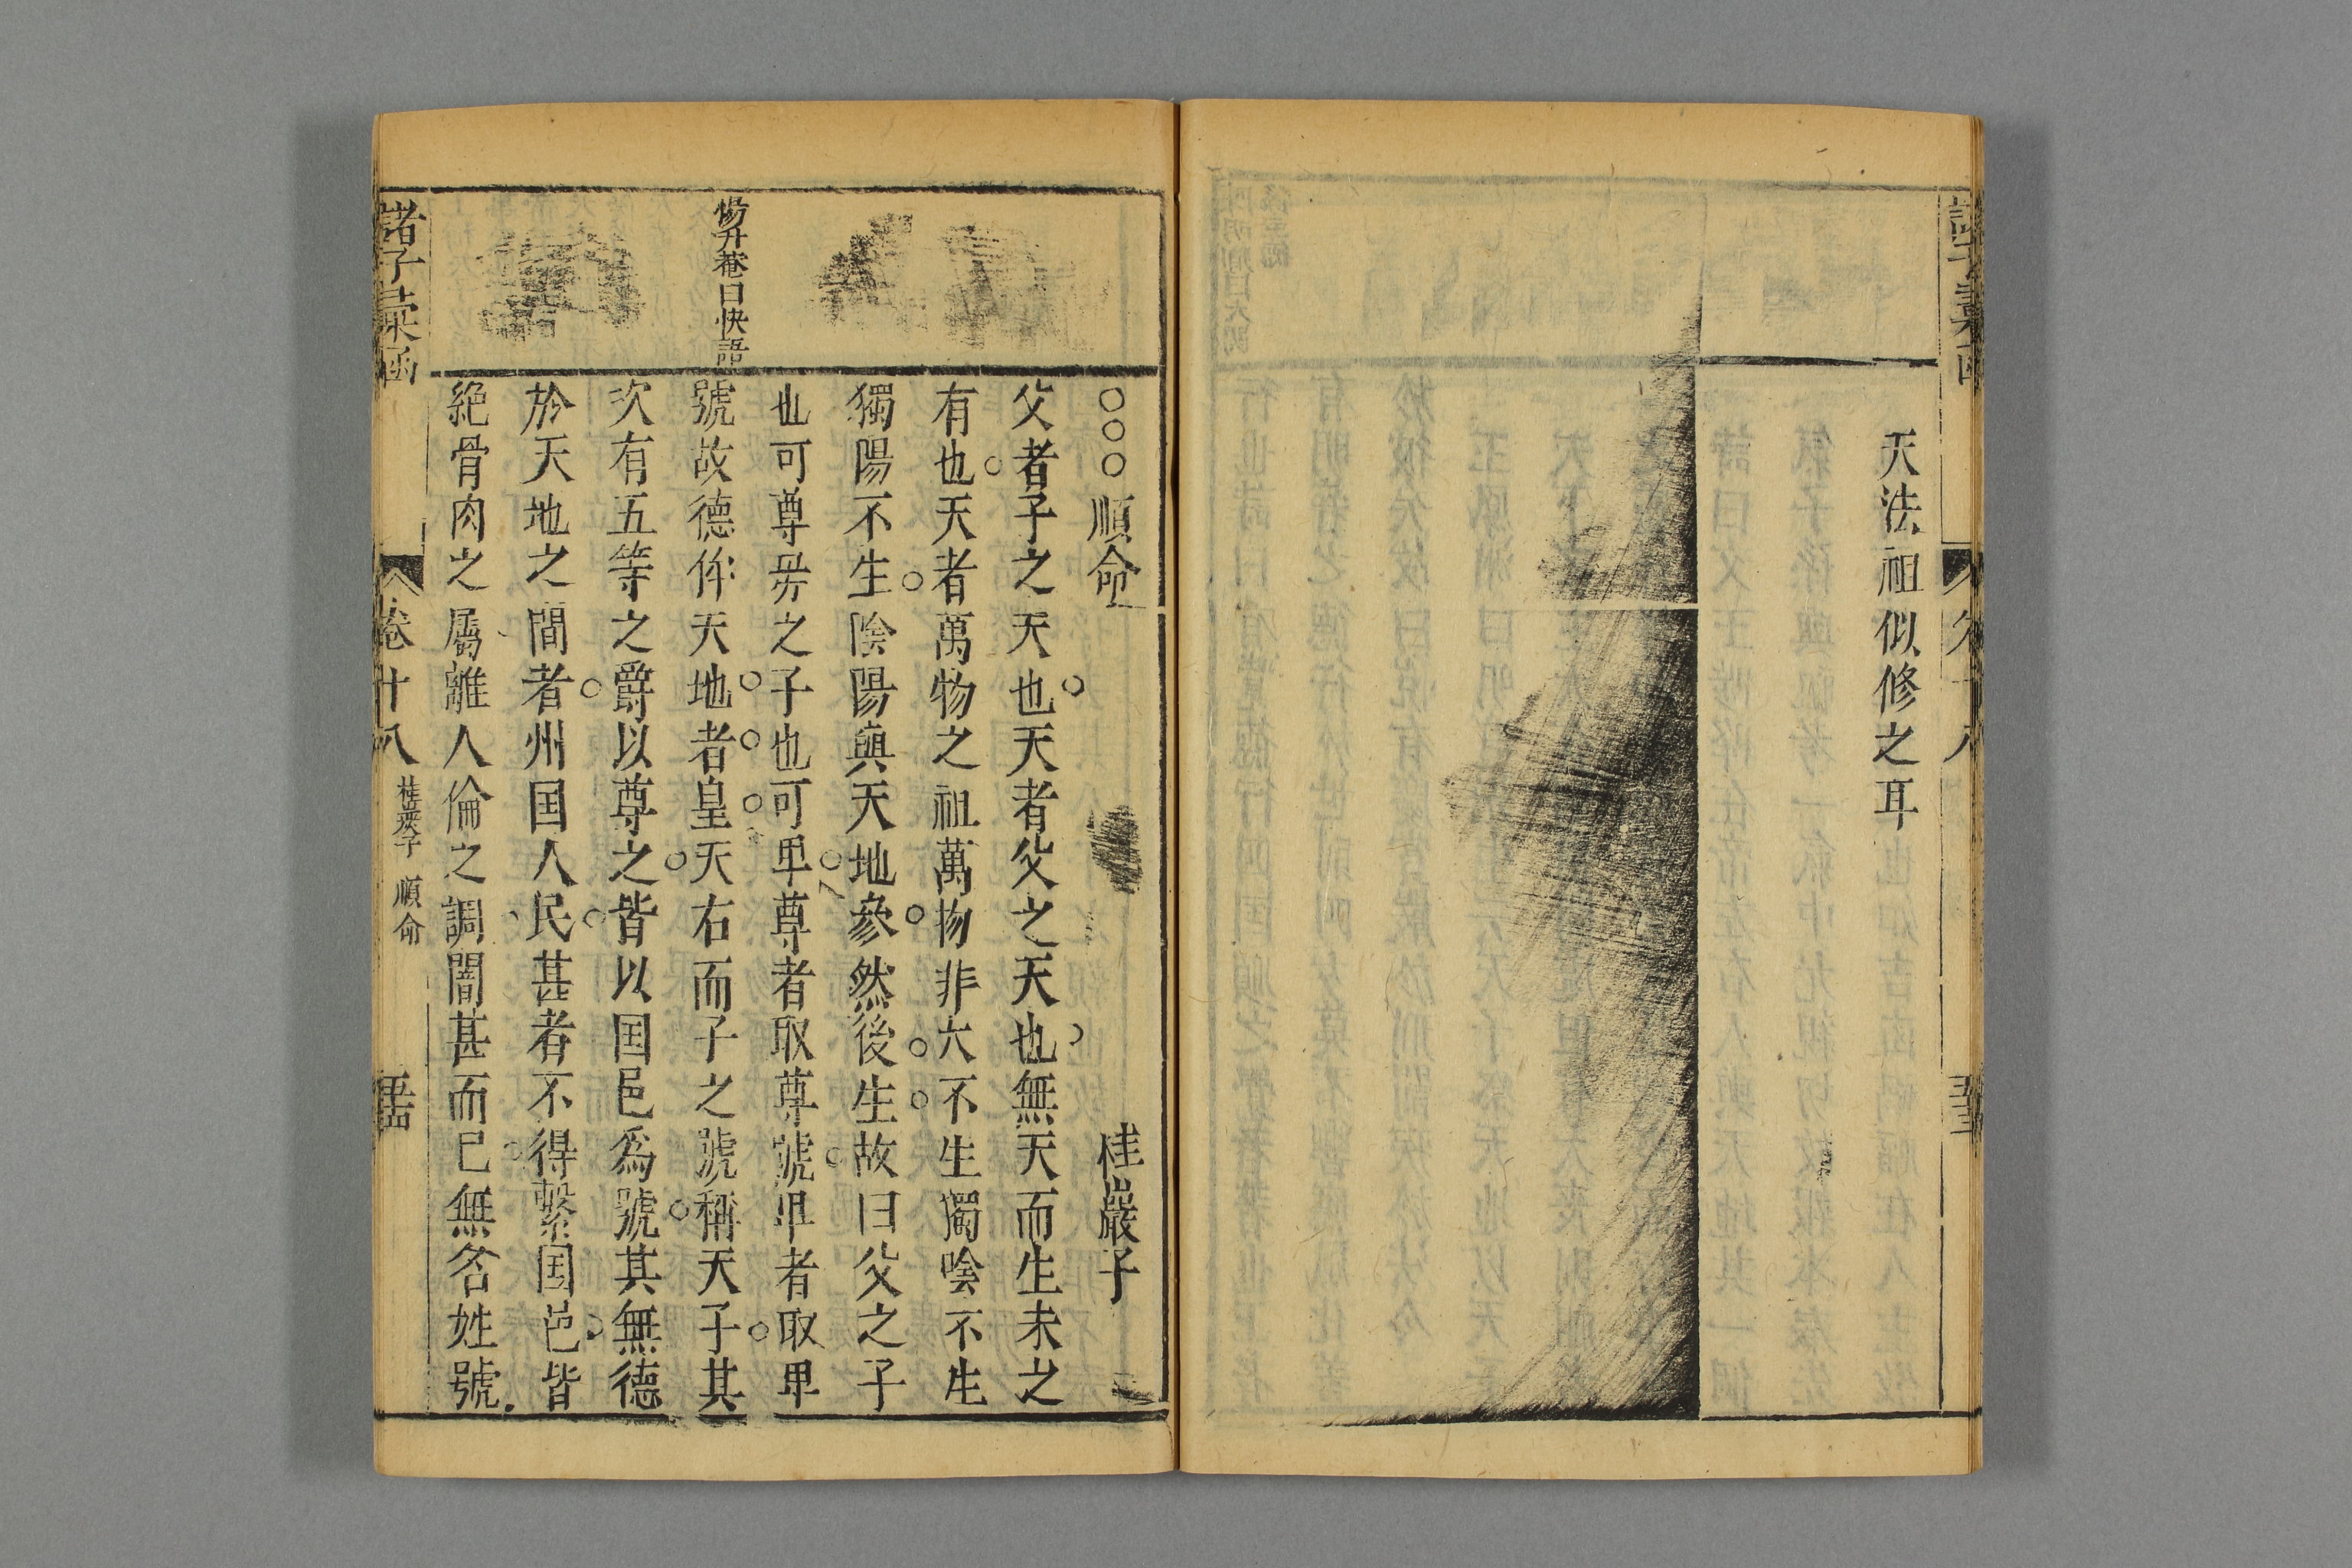 天法祖似修之耳
○○○順命 桂巖子
父者子之天也天者父之天也無天而生未之
有也天者萬物之祖萬物非天不生獨陰不生
獨陽不生陰陽與天地參然後生故曰父之子
也可尊母之子也可卑尊者取尊號卑者取卑
號故德侔天地者皇天右而子之號稱天子其
次有五等之爵以尊之皆以国邑爲號其無德
於天地之間者州国人民甚者不得繫国邑皆
絶骨肉之屬離人倫之謂閽甚而已無名姓號
楊升菴曰快語
諸子彙函
卷十八
桂巖子 順命